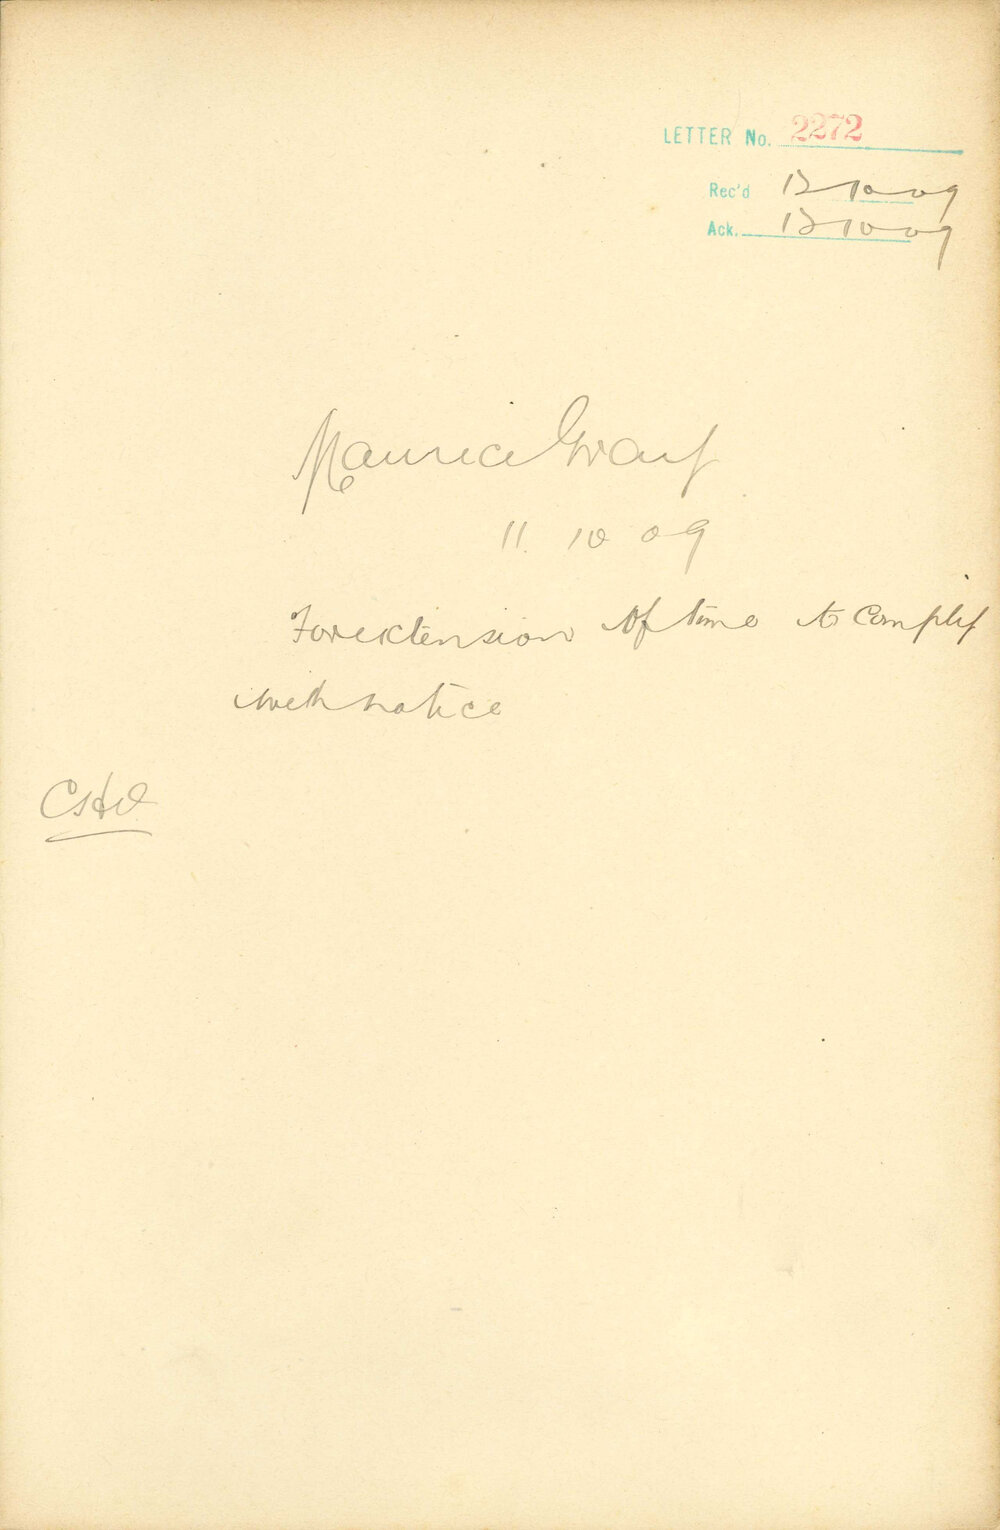 LETTER No. 2272
Rec'd 12 10 09
Ack. 12 10 09
Maurice
11. 10 09
For extension of time to comply
with notice